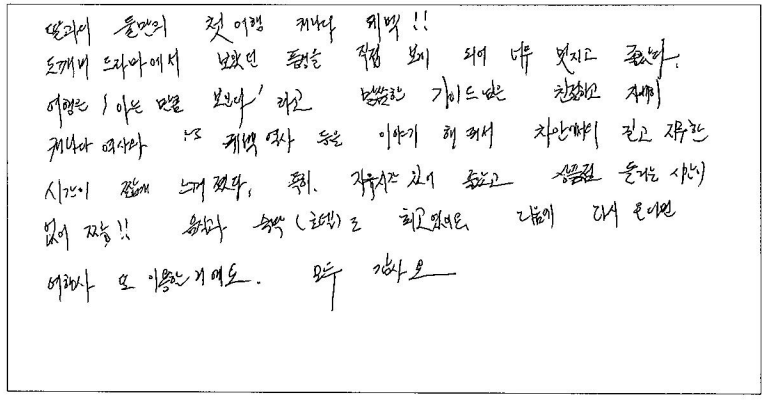 딸과의 둘만의 첫 여행 캐나다 퀘백!!
도깨비 드라마에서 보았던 풍경을 직접 보게 되어 너무 멋지고 좋았다.
여행은 '아는 만큼 보인다' 라고 말씀한 가이드님은 친절하고 자세히
캐나다 역사와 퀘백 역사 등을 이야기 해 줘서 차안에서의 길고 지루한
시간이 짧게 느껴졌다. 특히. 자유시간 있어 좋았고 상품점 들리는 시간이
없어 짜능!! 음식과 숙박(호텔)도 최고였어요. 다음에 다시 온다면
여행사 또 이용할거예요. 모두 감사요